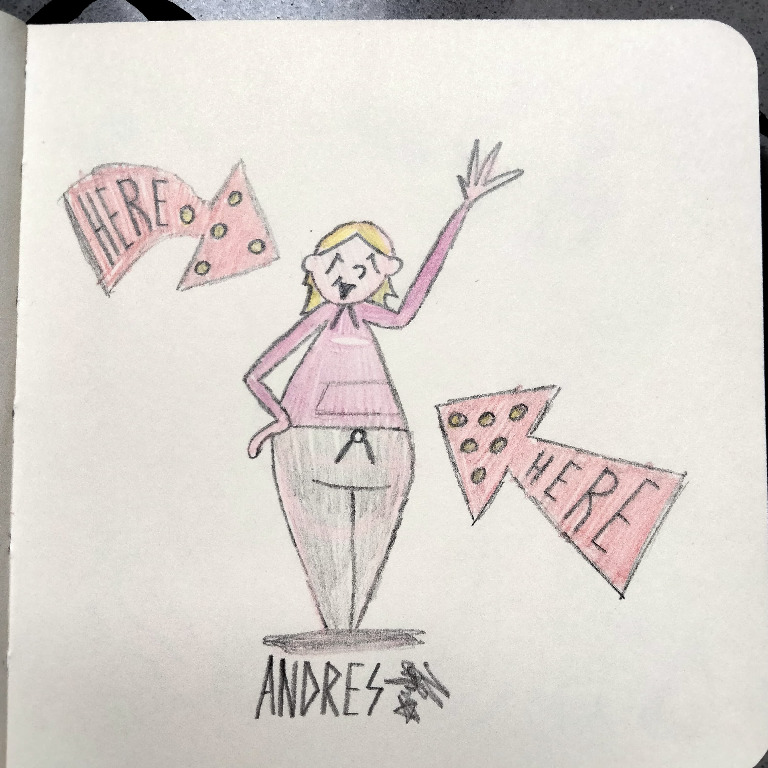 HERE
HERE
ANDRES